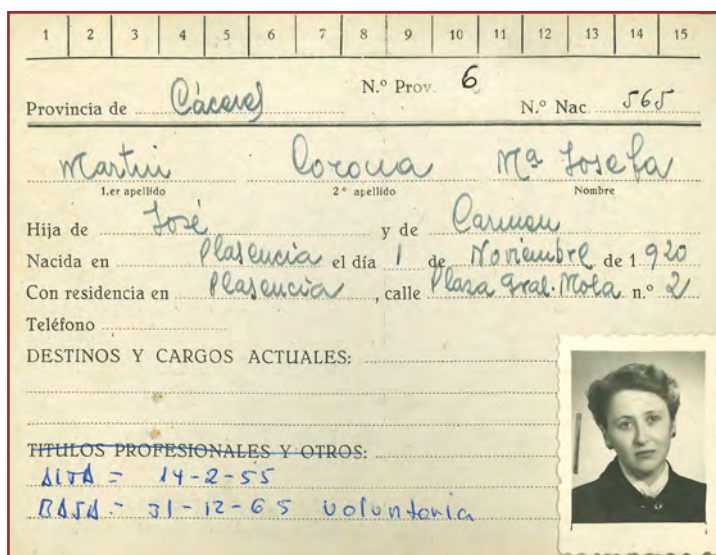 1 2 3 4 5 6 7 8 9 10 11 12 13 14 15
Provincia de Cáceres N.º Prov. 6 N.º Nac. 565
Martin Corona Mª Josefa
1.er apellido 2º apellido Nombre
Hija de José y de Carmen
Nacida en Plasencia el día 1 de Noviembre de 1 920
Con residencia en Plasencia, calle Plaza Gral. Mola n.º 2
Teléfono
DESTINOS Y CARGOS ACTUALES:
TITULOS PROFESIONALES Y OTROS:
ALTA = 14-2-55
BAJA - 31-12-65 voluntaria